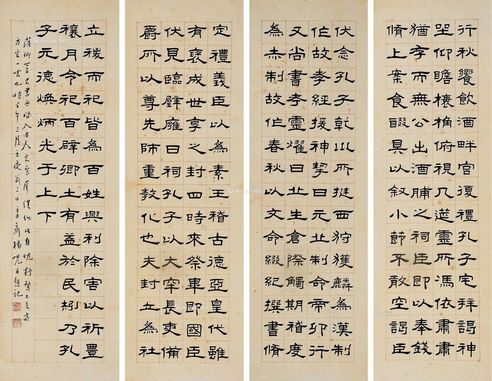 行秋饗飲酒畔宮復禮孔子宅拜謁神
坐仰瞻榱桷俯視几筵靈所馮依肅肅
猶存而無公出酒脯之祠臣即以奉錢
脩上案食醊具以叙小節不敢空謁臣
伏念孔子乾川所挺西狩獲麟為漢制
作故孝經援神挈曰元丘制命帝卯行
又尚書考靈燿曰丘生倉際觸期稽度
為赤制故作春秋以文命綴紀撰書脩
定禮義臣以為素王稽古德亞皇代雖
有褒成世享之封四時來祭畢即國臣
伏見臨辟雍日祠孔子以大宰長吏備
爵所以尊先師重教化也夫封土為社
立稷而祀皆為百姓興利除害以祈豐
穰月令祀百辟卿士有益於民矧乃孔
子元德煥炳光于上下